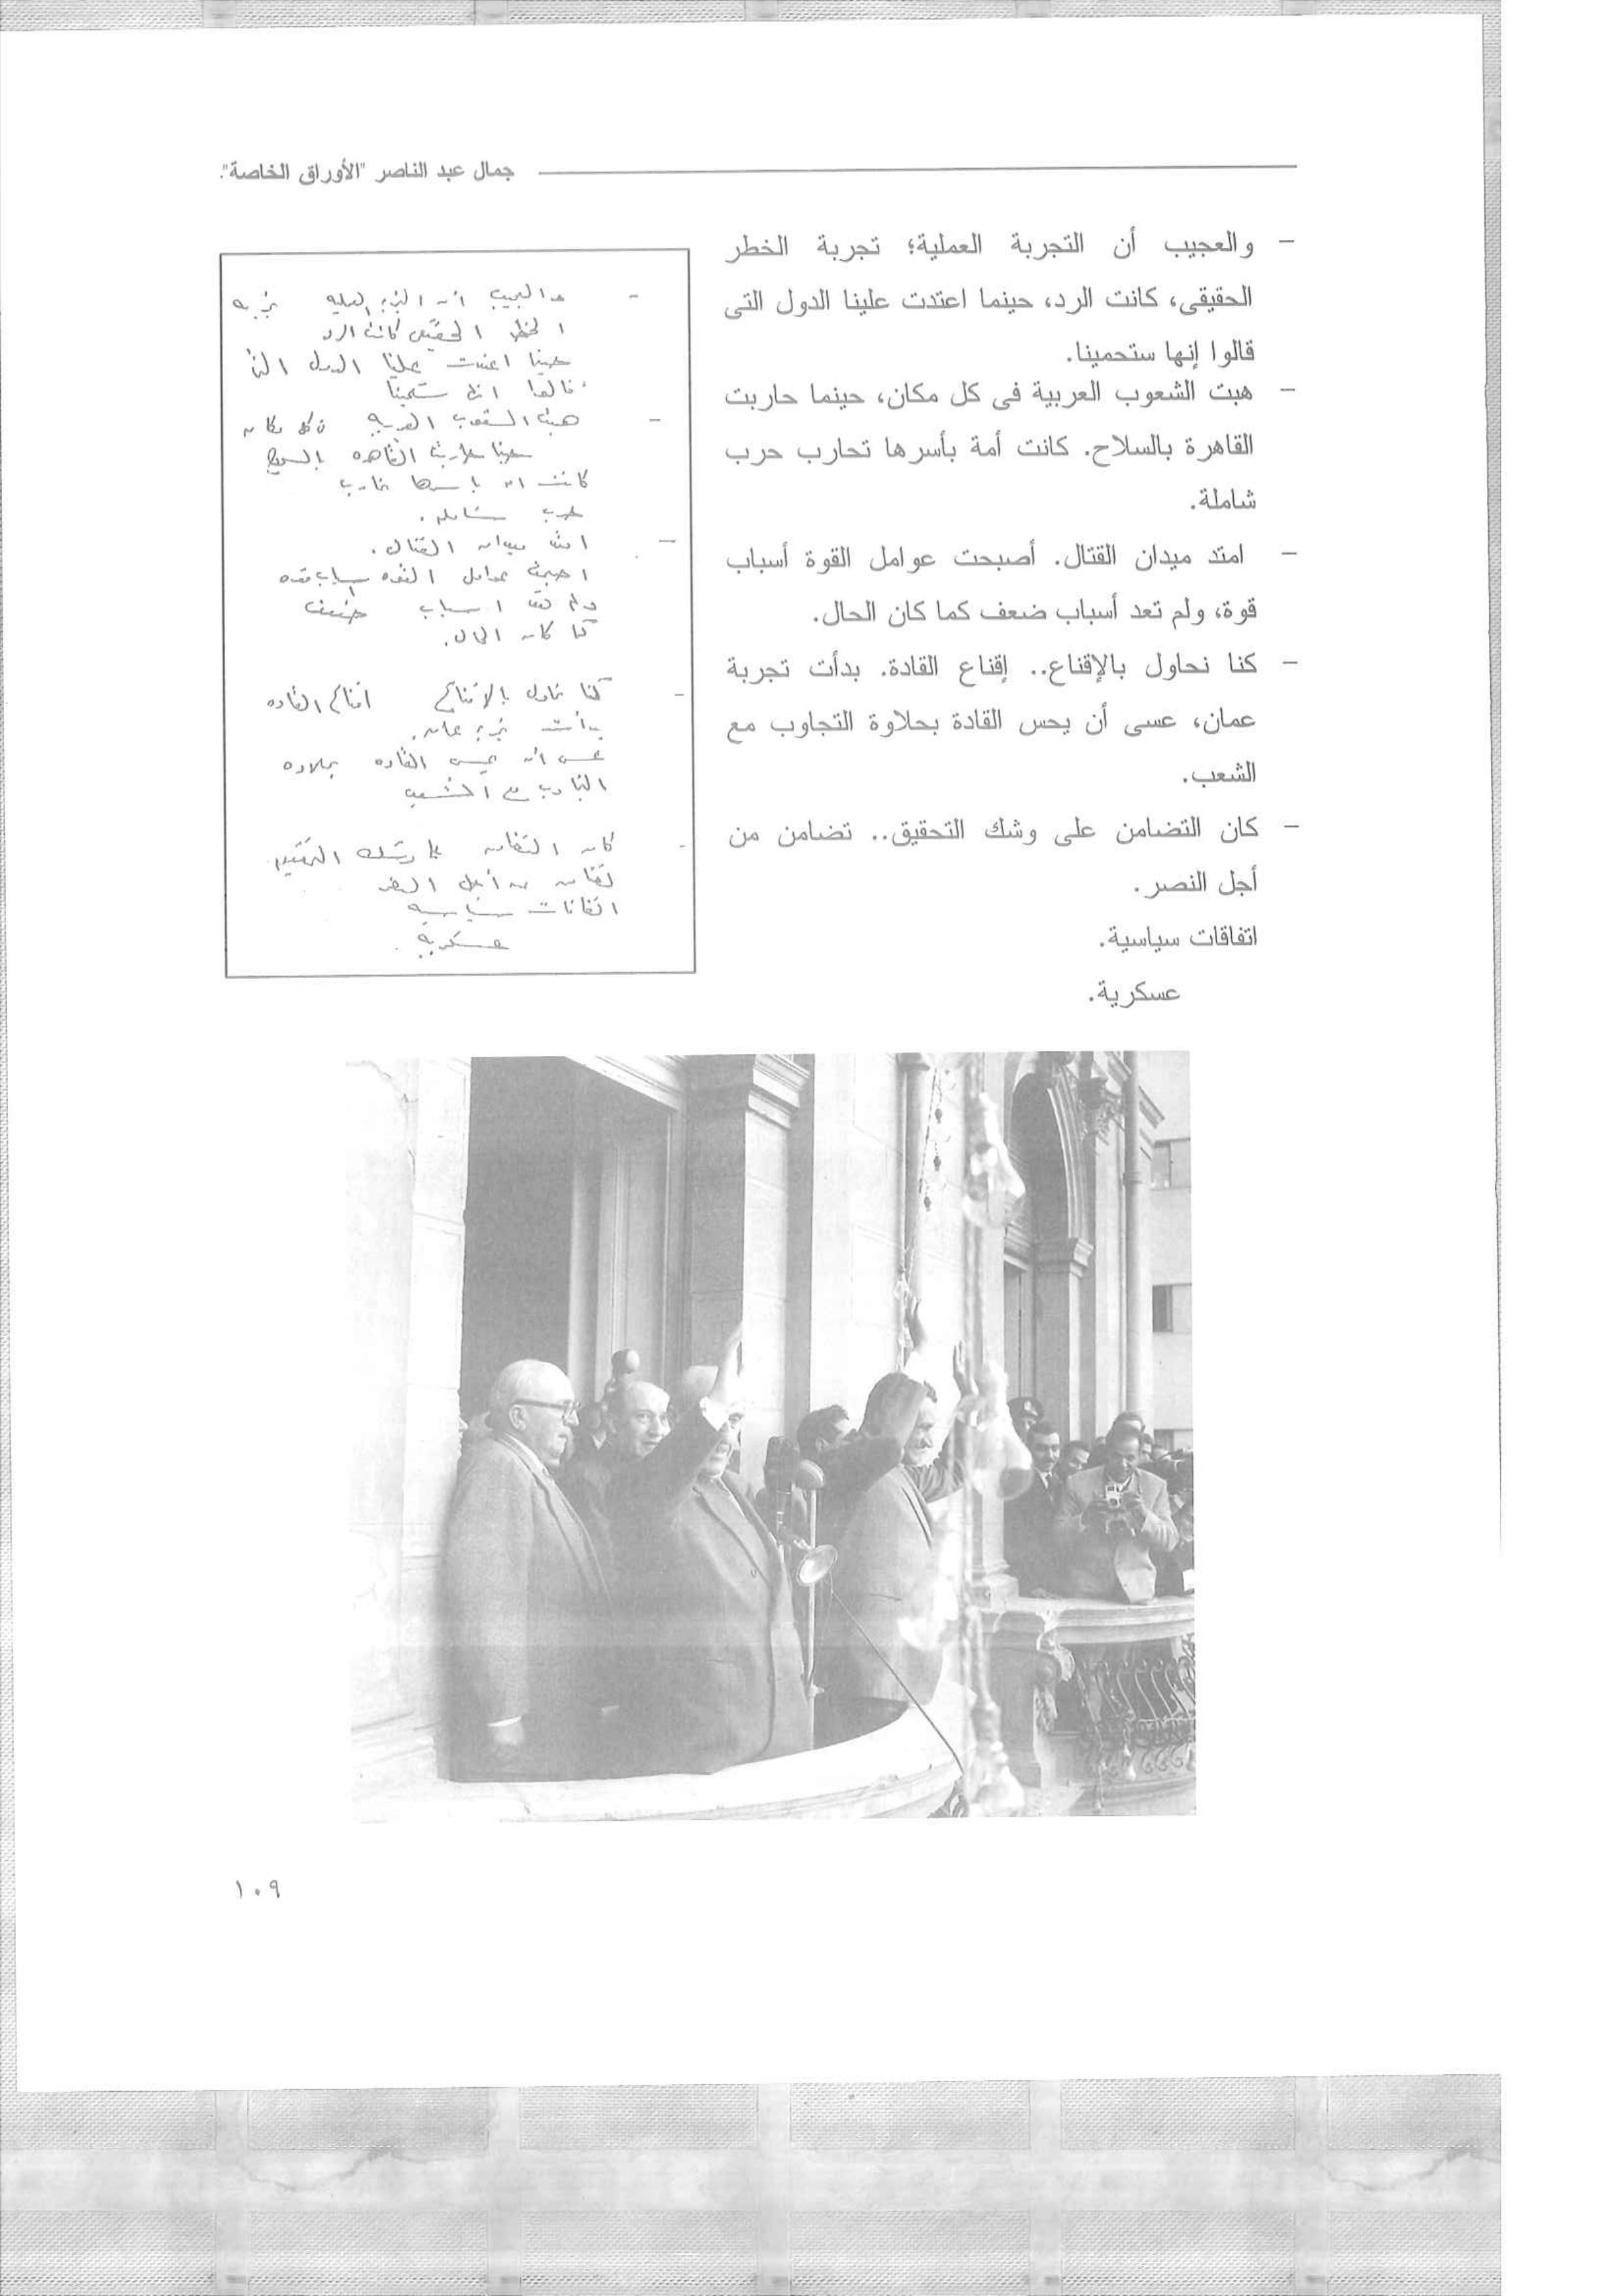 جمال عبد الناصر "الأوراق الخاصة".
– والعجيب أن التجربة العملية؛ تجربة الخطر
الحقيقى، كانت الرد، حينما اعتدت علينا الدول التى
قالوا إنها ستحمينا.
– هبت الشعوب العربية فى كل مكان، حينما حاربت
القاهرة بالسلاح. كانت أمة بأسرها تحارب حرب
شاملة.
– امتد ميدان القتال. أصبحت عوامل القوة أسباب
قوة، ولم تعد أسباب ضعف كما كان الحال.
– كنا نحاول بالإقناع.. إقناع القادة. بدأت تجربة
عمان، عسى أن يحس القادة بحلاوة التجاوب مع
الشعب.
– كان التضامن على وشك التحقيق.. تضامن من
أجل النصر.
اتفاقات سياسية.
عسكرية.
- والعجيب أن التجربة العمليه تجربه
الخطر الحقيقى كانت الرد
حينما اعتدت علينا الدول التى
قالوا انها ستحمينا
- هبت الشعوب العربيه فى كل مكان
حينما حاربت القاهره بالسلاح
كانت امه باسرها تحارب
حرب شامله.
- امتد ميدان القتال.
اصبحت عوامل القوه اسباب قوه
ولم تعد اسباب ضعف
كما كان الحال.
- كنا نحاول بالإقناع اقناع القاده
بدأت تجربة عمان.
عسى أن يحس القاده بحلاوه
التجاوب مع الشعب
- كان التضامن على وشك التحقيق.
تضامن من أجل النصر
اتفاقات سياسيه
عسكرية.
١٠٩